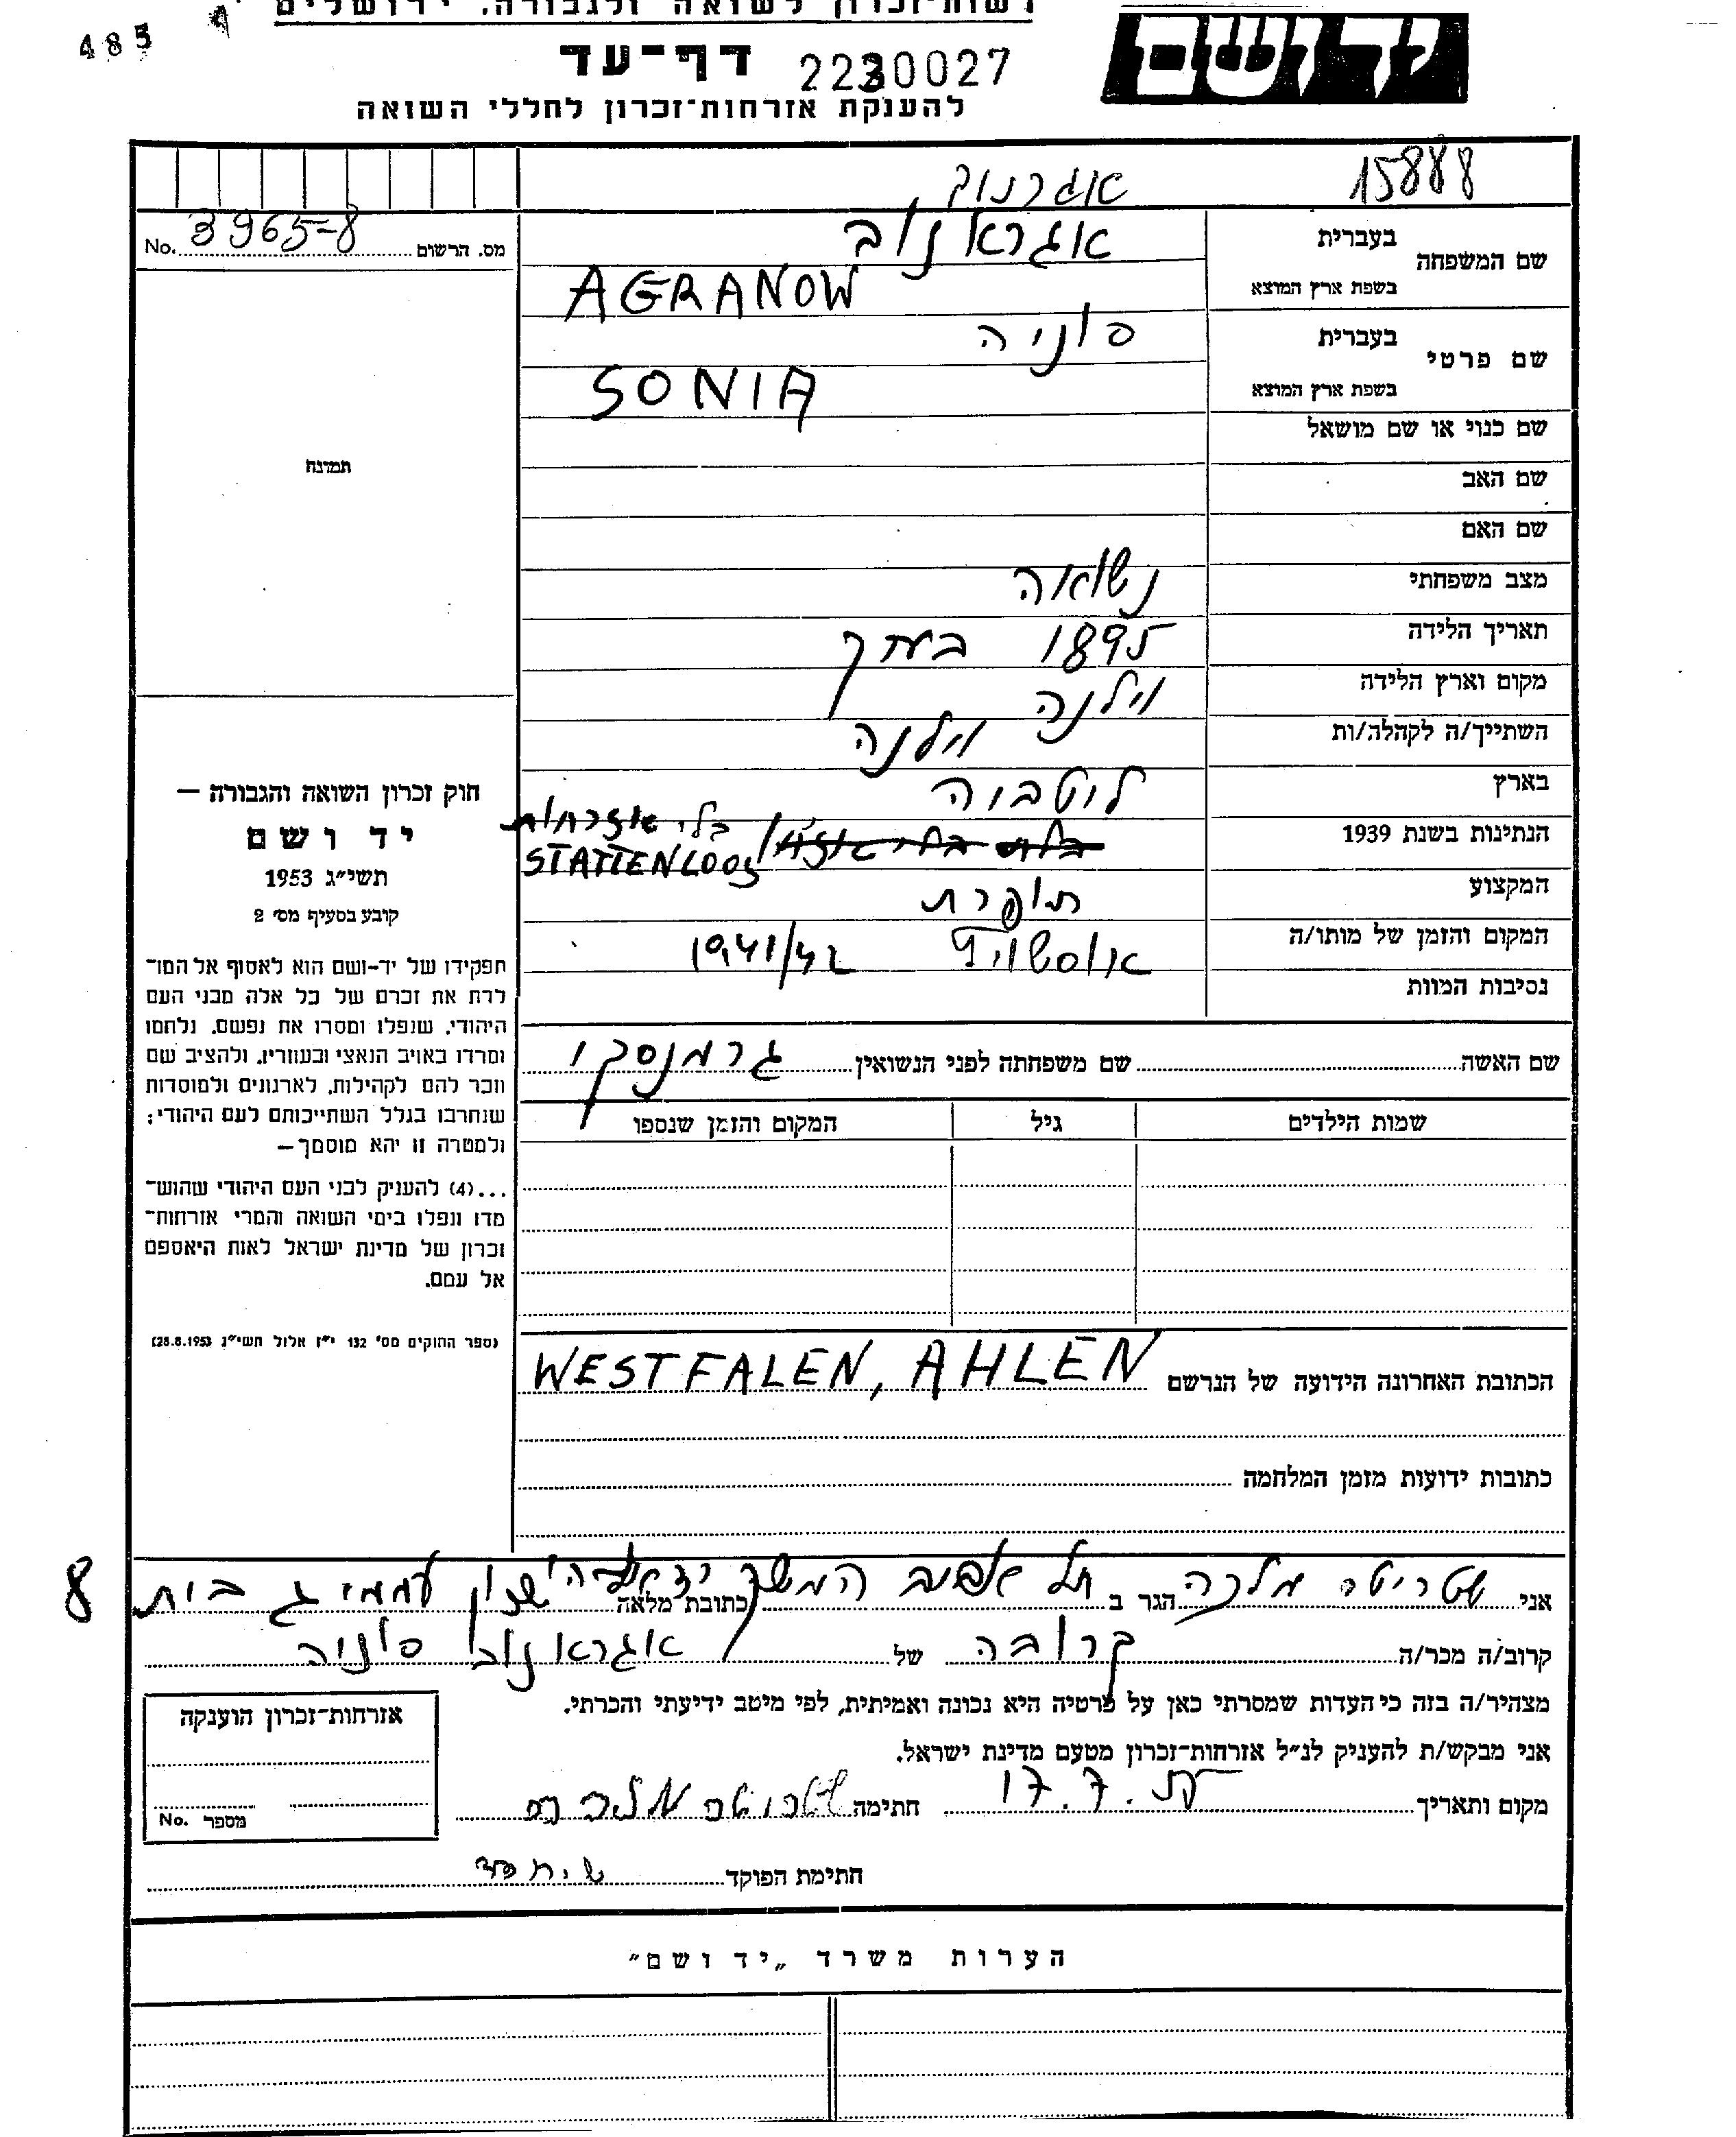 רשות־זכרון לשואה ולגבורה, ירושלים
485
יד ושם
דף־עד 2230027
להענקת אזרחות־זכרון לחללי השואה
15888 אגרנוב
מס. הרשום 3965-8 No.
שם המשפחה בעברית אגראנוב
בשפת ארץ המוצא AGRANOW
שם פרטי בעברית סוניה
בשפת ארץ המוצא SONIA
שם כנוי או שם מושאל
שם האב
שם האם
מצב משפחתי נשואה
תאריך הלידה 1895 בערך
מקום וארץ הלידה וילנה
השתייך/ה לקהלה/ות וילנה
בארץ ליטבוה
הנתינות בשנת 1939 בלי אזרחות
STATTENLOOS
המקצוע תופרת
המקום והזמן של מותו/ה אושוויץ 1941/42
נסיבות המוות
שם האשה שם משפחתה לפני הנשואין גרמנסקי
שמות הילדים גיל המקום והזמן שנספו
תמונה
חוק זכרון השואה והגבורה –
יד ושם
תשי״ג 1953
קובע בסעיף מס׳ 2
תפקידו של יד-ושם הוא לאסוף אל המו־
לדת את זכרם של כל אלה מבני העם
היהודי, שנפלו ומסרו את נפשם, נלחמו
ומרדו באויב הנאצי ובעוזריו, ולהציב שם
וזכר להם לקהילות, לארגונים ולמוסדות
שנחרבו בגלל השתייכותם לעם היהודי;
ולמטרה זו יהא מוסמך –
...(4) להעניק לבני העם היהודי שהוש־
מדו ונפלו בימי השואה והמרי אזרחות־
זכרון של מדינת ישראל לאות היאספם
אל עמם.
(ספר החוקים מס׳ 132 י״ז אלול תשי״ג 28.8.1953)
הכתובת האחרונה הידועה של הנרשם WESTFALEN, AHLEN
כתובות ידועות מזמן המלחמה
אני שטריטר מלכה הגר ב תל אביב המשך כתובת מלאה שכון עממי ג בית 8
קרוב/ה מכר/ה קרובה של אגראנוב סוניה
מצהיר/ה בזה כי העדות שמסרתי כאן על פרטיה היא נכונה ואמיתית, לפי מיטב ידיעתי והכרתי.
אני מבקש/ת להעניק לנ״ל אזרחות־זכרון מטעם מדינת ישראל.
מקום ותאריך 17.7. חתימה
חתימת הפוקד
אזרחות־זכרון הוענקה
מספר No.
הערות משרד „יד ושם״